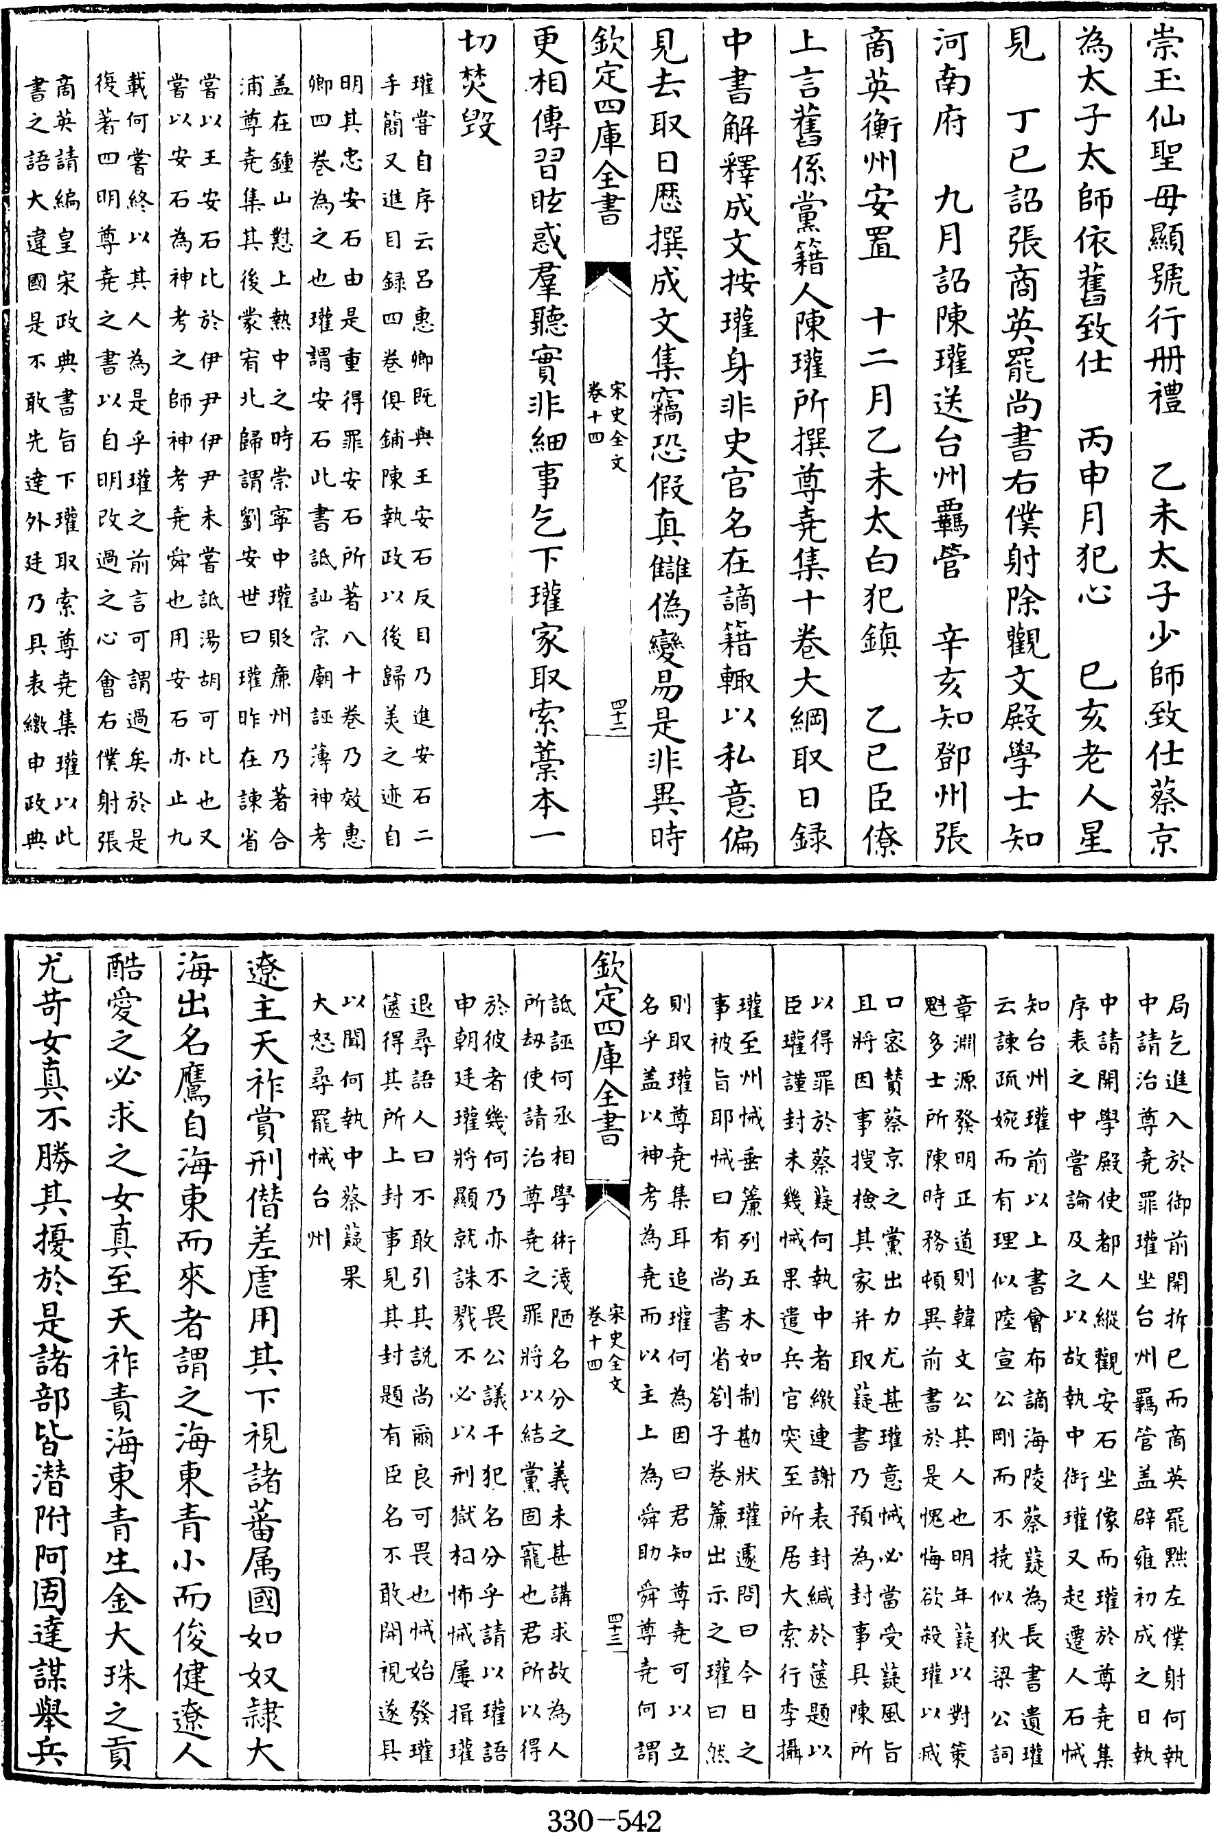 崇玉仙聖母顯號行册禮　乙未太子少師致仕蔡京
為太子太師依舊致仕　丙申月犯心　巳亥老人星
見　丁巳詔張商英罷尚書右僕射除觀文殿學士知
河南府　九月詔陳瓘送台州羈管　辛亥知鄧州張
商英衡州安置　十二月乙未太白犯鎮　乙巳臣僚
上言舊係黨籍人陳瓘所撰尊堯集十卷大綱取日録
中書解釋成文按瓘身非史官名在謫籍輙以私意偏
見去取日歷撰成文集竊恐假真讎偽變易是非異時
欽定四庫全書
宋史全文
卷十四
四十二
更相傳習眩惑羣聽實非細事乞下瓘家取索藁本一
切焚毀
瓘嘗自序云呂惠卿既與王安石反目乃進安石二
手簡又進日録四卷俱鋪陳執政以後歸美之迹自
明其忠安石由是重得罪安石所著八十卷乃效惠
卿四卷為之也瓘謂安石此書詆訕宗廟誣薄神考
盖在鍾山懟上熱中之時崇寧中瓘貶亷州乃著合
浦尊堯集其後蒙宥北歸謂劉安世曰瓘昨在諫省
嘗以王安石比於伊尹伊尹未嘗詆湯胡可比也又
嘗以安石為神考之師神考堯舜也用安石亦止九
載何嘗終以其人為是乎瓘之前言可謂過矣於是
復著四明尊堯之書以自明改過之心會右僕射張
商英請編皇宋政典書旨下瓘取索尊堯集瓘以此
書之語大違國是不敢先達外廷乃具表繳申政典
局乞進入於御前開拆已而商英罷黜左僕射何執
中請治尊堯罪瓘坐台州羈管盖辟雍初成之日執
中請開學殿使都人縱觀安石坐像而瓘於尊堯集
序表之中嘗論及之以故執中銜瓘又起遷人石悈
知台州瓘前以上書曾布謫海陵蔡薿為長書遺瓘
云諫疏婉而有理似陸宣公剛而不撓似狄梁公詞
章淵源發明正道則韓文公其人也明年薿以對策
魁多士所陳時務頓異前書於是愧悔欲殺瓘以滅
口宻贊蔡京之黨出力尤甚瓘意悈必當受薿風旨
且將因事搜檢其家并取薿書乃預為封事具陳所
以得罪於蔡薿何執中者繳連謝表封緘於篋題以
臣瓘謹封未幾悈果遣兵官突至所居大索行李攝
瓘至州悈垂簾列五木如制勘狀瓘遽問曰今日之
事被旨耶悈曰有尚書省劄子卷簾出示之瓘曰然
則取瓘尊堯集耳追瓘何為因曰君知尊堯可以立
名乎盖以神考為堯而以主上為舜助舜尊堯何謂
欽定四庫全書
宋史全文
卷十四
四十三
詆誣何丞相學術淺陋名分之義未甚講求故為人
所刼使請治尊堯之罪將以結黨固寵也君所以得
於彼者幾何乃亦不畏公議干犯名分乎請以瓘語
申朝廷瓘將顯就誅戮不必以刑獄相怖悈屢揖瓘
退尋語人曰不敢引其說尚爾良可畏也悈始發瓘
篋得其所上封事見其封題有臣名不敢開視遂具
以聞何執中蔡薿果
大怒尋罷悈台州
遼主天祚賞刑僭差虐用其下視諸蕃属國如奴隷大
海出名鷹自海東而來者謂之海東青小而俊健遼人
酷愛之必求之女真至天祚責海東青生金大珠之貢
尤苛女真不勝其擾於是諸部皆潜附阿固達謀舉兵
330-542